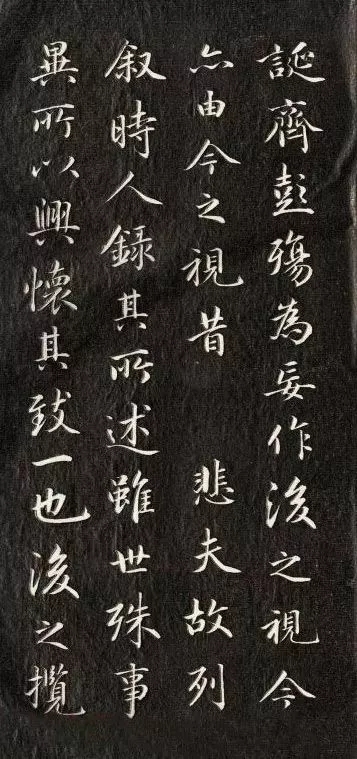 誕齊彭殤為妄作後之視今
亦由今之視昔 悲夫故列
叙時人錄其所述雖世殊事
異所以興懷其致一也後之攬